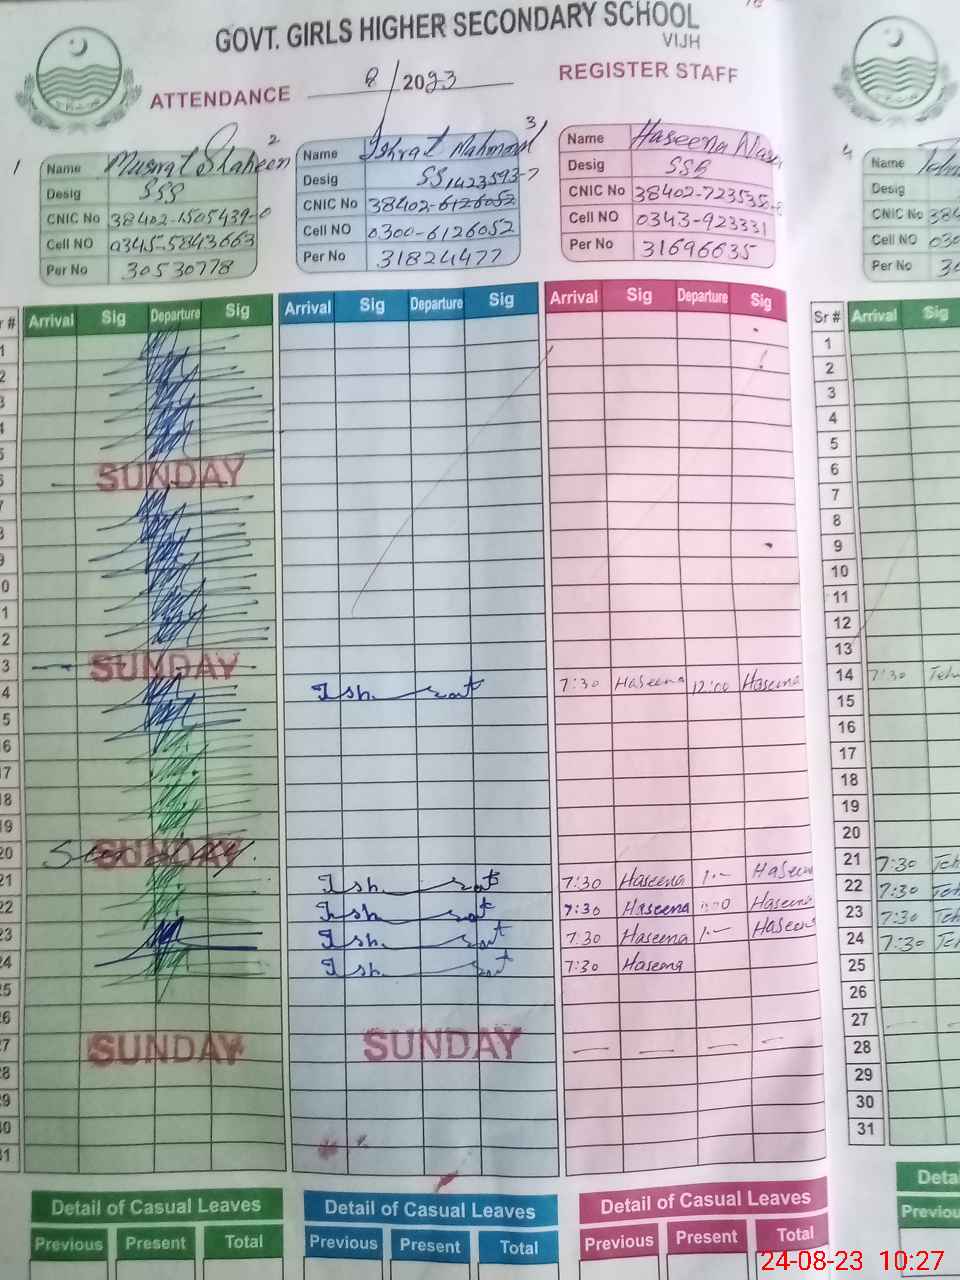 GOVT. GIRLS HIGHER SECONDARY SCHOOL
VIJH
ATTENDANCE 8/2023 REGISTER STAFF
1
Name Musrat Shaheen
Desig SSS
CNIC No 38402-1505439-0
Cell NO 0345-5843663
Per No 30530778
2
Name Ishrat Mahmood
Desig SS
CNIC No 38402-6126052
1423593-7
Cell NO 0300-6126052
Per No 31824477
3
Name Haseena
Desig SSS
CNIC No 38402-7235358-8
Cell NO 0343-923331
Per No 31696635
4
Name
Desig
CNIC No 384
Cell NO 030
Per No 30
Arrival Sig Departure Sig
Arrival Sig Departure Sig
Arrival Sig Departure Sig
Sr # Arrival Sig
1
2
3
4
5
6 SUNDAY
7
8
9
10
11
12
13 SUNDAY
14 Ishrat 7:30 Haseena 12:00 Haseena 7:30
15
16
17
18
19
20 SUNDAY
21 Ishrat 7:30 Haseena 1:- Haseena 7:30
22 Ishrat 7:30 Haseena Haseena 7:30
23 Ishrat 7:30 Haseena 1:- Haseena 7:30
24 Ishrat 7:30 Haseena 7:30
25
26
27 SUNDAY SUNDAY
28
29
30
31
Detail of Casual Leaves
Previous Present Total
Detail of Casual Leaves
Previous Present Total
Detail of Casual Leaves
Previous Present Total
24-08-23 10:27